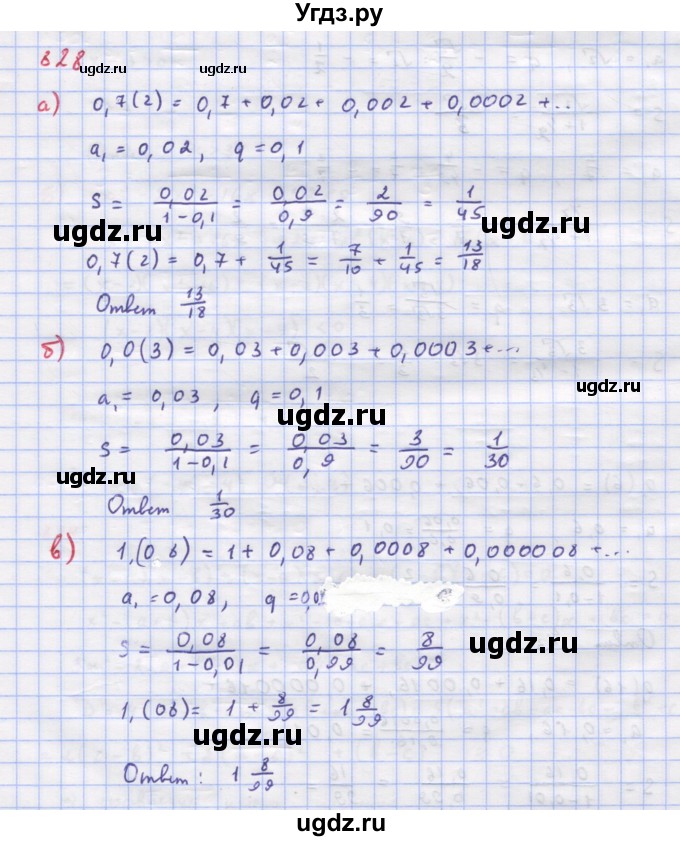 Угдз.ру
828
ugdz.ru ugdz.ru
а) 0,7(2) = 0,7 + 0,02 + 0,002 + 0,0002 + ..
a₁ = 0,02, q = 0,1
S = 0,02/(1-0,1) = 0,02/0,9 = 2/90 = 1/45
ugdz.ru ugdz.ru
0,7(2) = 0,7 + 1/45 = 7/10 + 1/45 = 13/18
Ответ 13/18
б) 0,0(3) = 0,03 + 0,003 + 0,0003 + ...
ugdz.ru
a₁ = 0,03, q = 0,1
ugdz.ru
S = 0,03/(1-0,1) = 0,03/0,9 = 3/90 = 1/30
ugdz.ru
Ответ 1/30
в) 1,(08) = 1 + 0,08 + 0,0008 + 0,000008 + ...
a₁ = 0,08, q = 0,01
S = 0,08/(1-0,01) = 0,08/0,99 = 8/99
ugdz.ru
1,(08) = 1 + 8/99 = 1 8/99
ugdz.ru
Ответ: 1 8/99
ugdz.ru
ugdz.ru